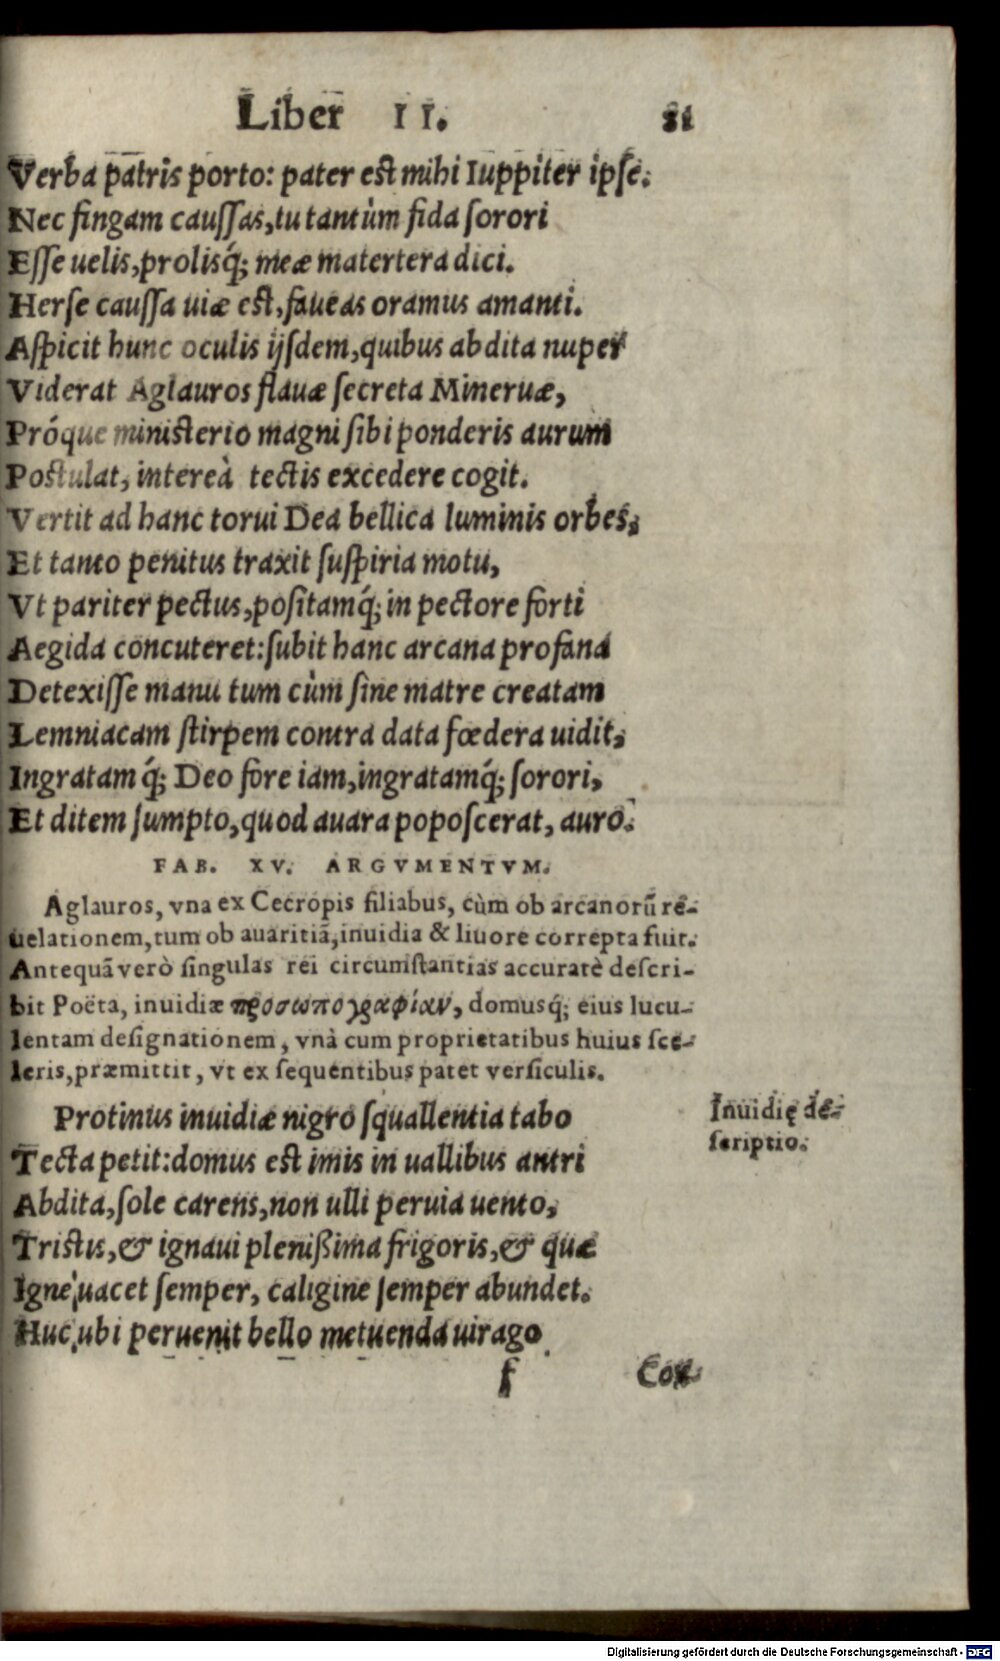 Liber II. 81
Verba patris porto: pater est mihi Iuppiter ipse.
Nec fingam caussas, tu tantùm fida sorori
Esse uelis, prolisq́; meæ matertera dici.
Herse caussa uiæ est, faueas oramus amanti.
Aspicit hunc oculis ijsdem, quibus abdita nuper
Viderat Aglauros flauæ secreta Mineruæ,
Próque ministerio magni sibi ponderis aurum
Postulat, intereà tectis excedere cogit.
Vertit ad hanc torui Dea bellica luminis orbes,
Et tanto penitus traxit suspiria motu,
Vt pariter pectus, positamq́; in pectore forti
Aegida concuteret: subit hanc arcana profana
Detexisse manu tum cùm sine matre creatam
Lemniacam stirpem contra data fœdera uidit,
Ingratamq́; Deo fore iam, ingratamq́; sorori,
Et ditem sumpto, quod auara poposcerat, auro.
FAB. XV. ARGVMENTVM.
Aglauros, vna ex Cecropis filiabus, cùm ob arcanorũ re-
uelationem, tum ob auaritiã, inuidia & liuore correpta fuit.
Antequã verò singulas rei circumstantias accuratè descri-
bit Poëta, inuidiæ προσωπογραφίαν, domusq́; eius lucu-
lentam designationem, vnà cum proprietatibus huius sce-
leris, præmittit, vt ex sequentibus patet versiculis.
Protinus inuidiæ nigro squallentia tabo
Tecta petit: domus est imis in uallibus antri
Abdita, sole carens, non ulli peruia uento,
Tristis, & ignaui plenißima frigoris, & quæ
Igne uacet semper, caligine semper abundet.
Huc ubi peruenit bello metuenda uirago
Inuidię de-
scriptio.
f Con-
Digitalisierung gefördert durch die Deutsche Forschungsgemeinschaft - DFG